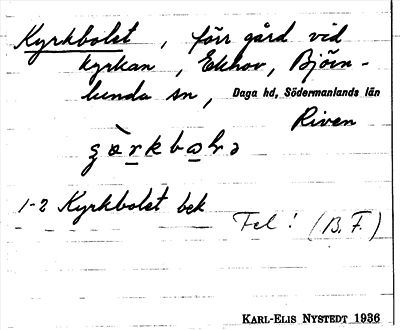 Kyrkbolet, förr gård vid
kyrkan, Ekhov, Björn-
lunda sn, Daga hd, Södermanlands län
Riven
1-2 Kyrkbolet bek
Fel! (B.F.)
KARL-ELIS NYSTEDT 1936